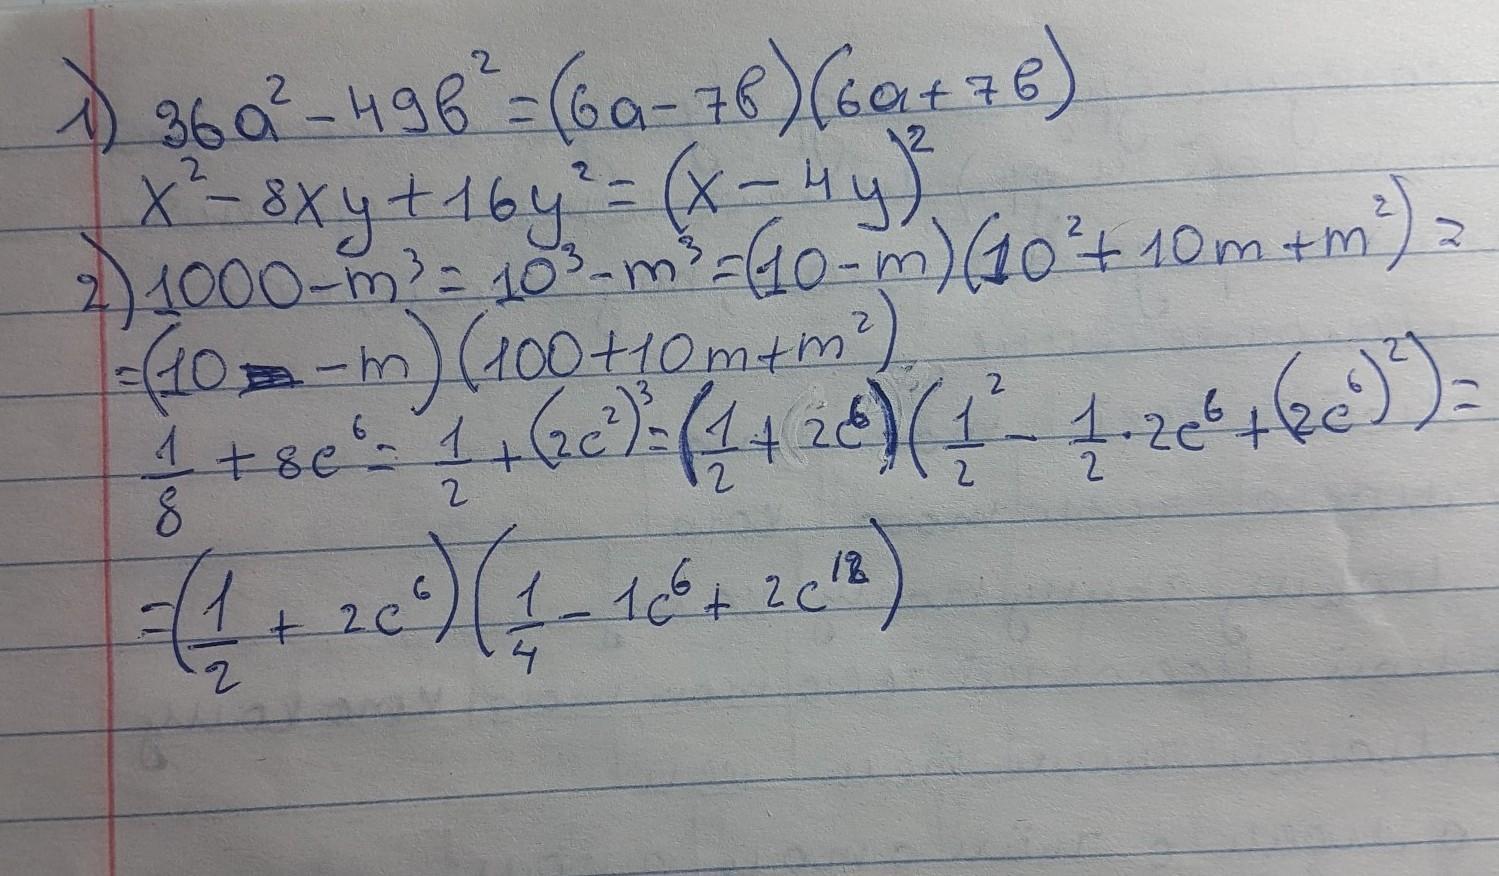 1) 36a² - 49в² = (6a - 7в)(6a + 7в)
x² - 8xy + 16y² = (x - 4y)²
2) 1000 - m³ = 10³ - m³ = (10 - m)(10² + 10m + m²) =
= (10 - m)(100 + 10m + m²)
1/8 + 8c⁶ = 1/2 + (2c²)³ = (1/2 + 2c⁶)(1²/2 - 1/2 · 2c⁶ + (2c⁶)²) =
= (1/2 + 2c⁶)(1/4 - 1c⁶ + 2c¹²)